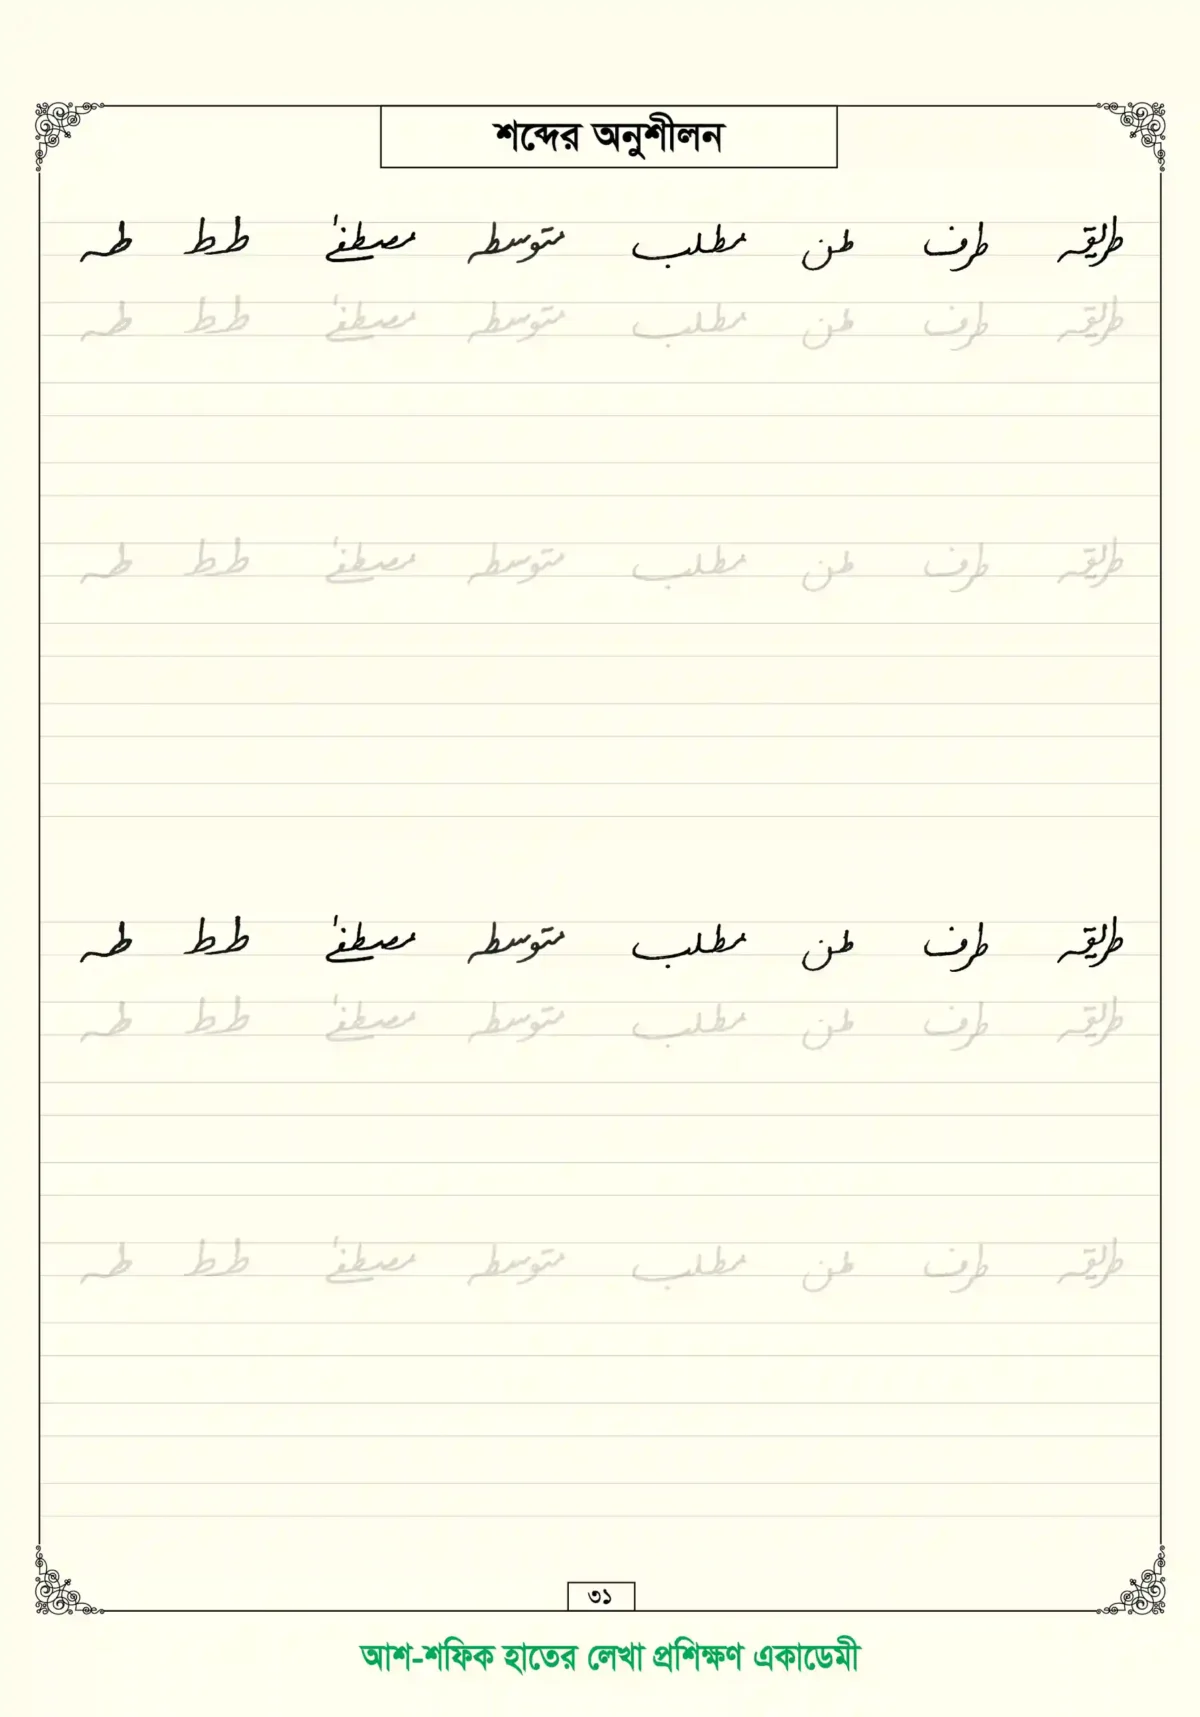 শব্দের অনুশীলন
طریقہ طرف طن مطلب متوسطہ مصطفےٰ ط ط طہ
طریقہ طرف طن مطلب متوسطہ مصطفےٰ ط ط طہ
طریقہ طرف طن مطلب متوسطہ مصطفےٰ ط ط طہ
طریقہ طرف طن مطلب متوسطہ مصطفےٰ ط ط طہ
طریقہ طرف طن مطلب متوسطہ مصطفےٰ ط ط طہ
طریقہ طرف طن مطلب متوسطہ مصطفےٰ ط ط طہ
৩১
আশ-শফিক হাতের লেখা প্রশিক্ষণ একাডেমী